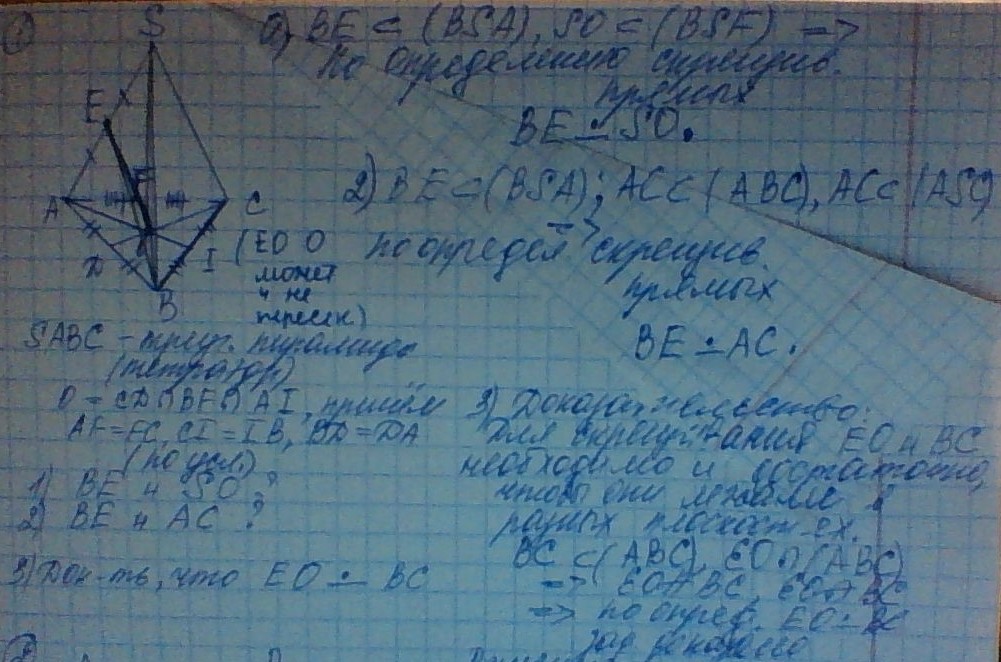 ①
S
E
F
A
C
O
D
I
B
(EO O
может
и не
пересек.)
SABC – треуг. пирамида
(тетраэдр)
O = CD ∩ BF ∩ AI, причём
AF=FC, CI=IB, BD=DA
(по усл.)
1) BE и SO ?
2) BE и AC ?
3) Док-ть, что EO ∸ BC
BE ⊂ (BSA), SO ⊂ (BSF) =>
по определению скрещив.
прямых
BE ∸ SO.
2) BE ⊂ (BSA); AC ⊂ (ABC), AC ⊂ (ASC)
=>
по определ скрещив.
прямых
BE ∸ AC.
3) Доказательство:
Для скрещивания EO и BC
необходимо и достаточно,
чтобы они лежали в
разных плоскостях.
BC ⊂ (ABC), EO ∩ (ABC)
=> EO ∦ BC, EO
=> по опред. EO ∸ BC
②